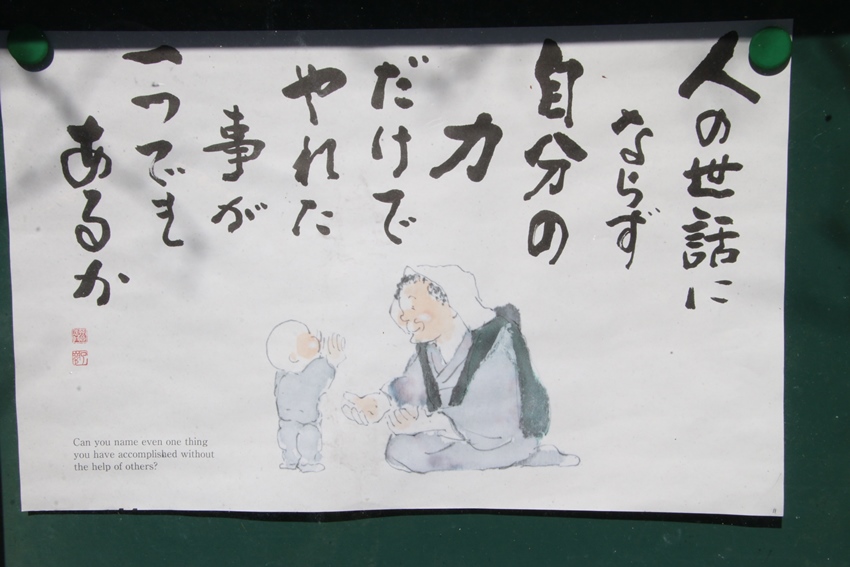 人の世話に
ならず
自分の
力
だけで
やれた
事が
一つでも
あるか
Can you name even one thing
you have accomplished without
the help of others?